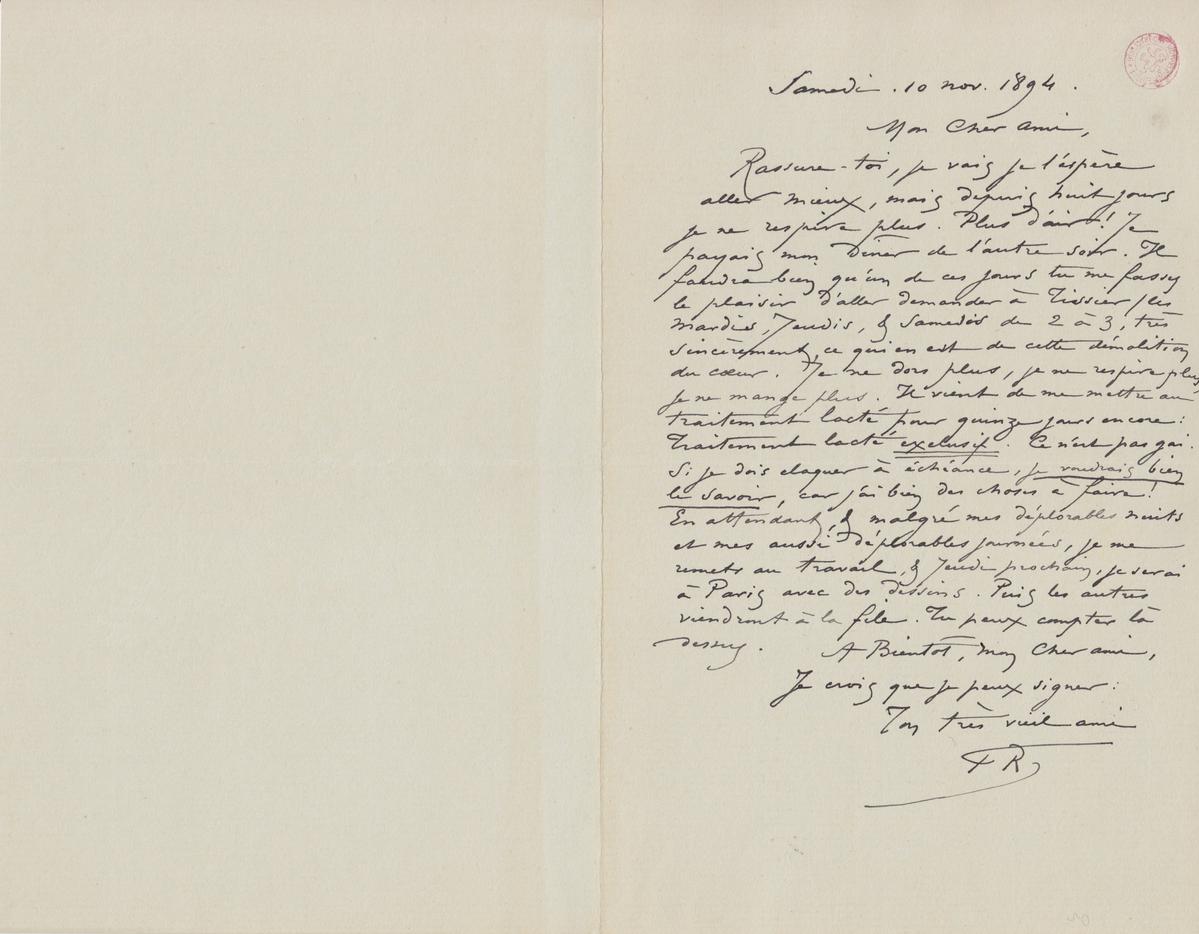 Samedi . 10 nov. 1894 .
Mon Cher ami,
Rassure-toi, je vais je l'espère
aller mieux, mais depuis huit jours
je ne respire plus. Plus d'air ! Je
payais mon Dîner de l'autre soir. Il
faudra bien qu'un de ces jours tu me fasses
le plaisir d'aller demander à Tissier (les
mardis, Jeudis, & Samedis de 2 à 3, très
sincèrement, ce qu'en est de cette démolition
du cœur. Je ne dors plus, je ne respire plus
je ne mange plus. Il vient de me mettre au
traitement lacté pour quinze jours encore :
Traitement lacté exclusif. Ce n'est pas gai.
Si je dois claquer à échéance, je voudrais bien
le savoir, car j'ai bien des choses à faire !
En attendant, & malgré mes déplorables nuits
et mes aussi déplorables journées, je me
remets au travail, & Jeudi prochain, je serai
à Paris avec des dessins. Puis les autres
viendront à la file. Tu peux compter là
dessus. A Bientôt, mon Cher ami,
Je crois que je peux signer :
Ton très vieil ami
FR